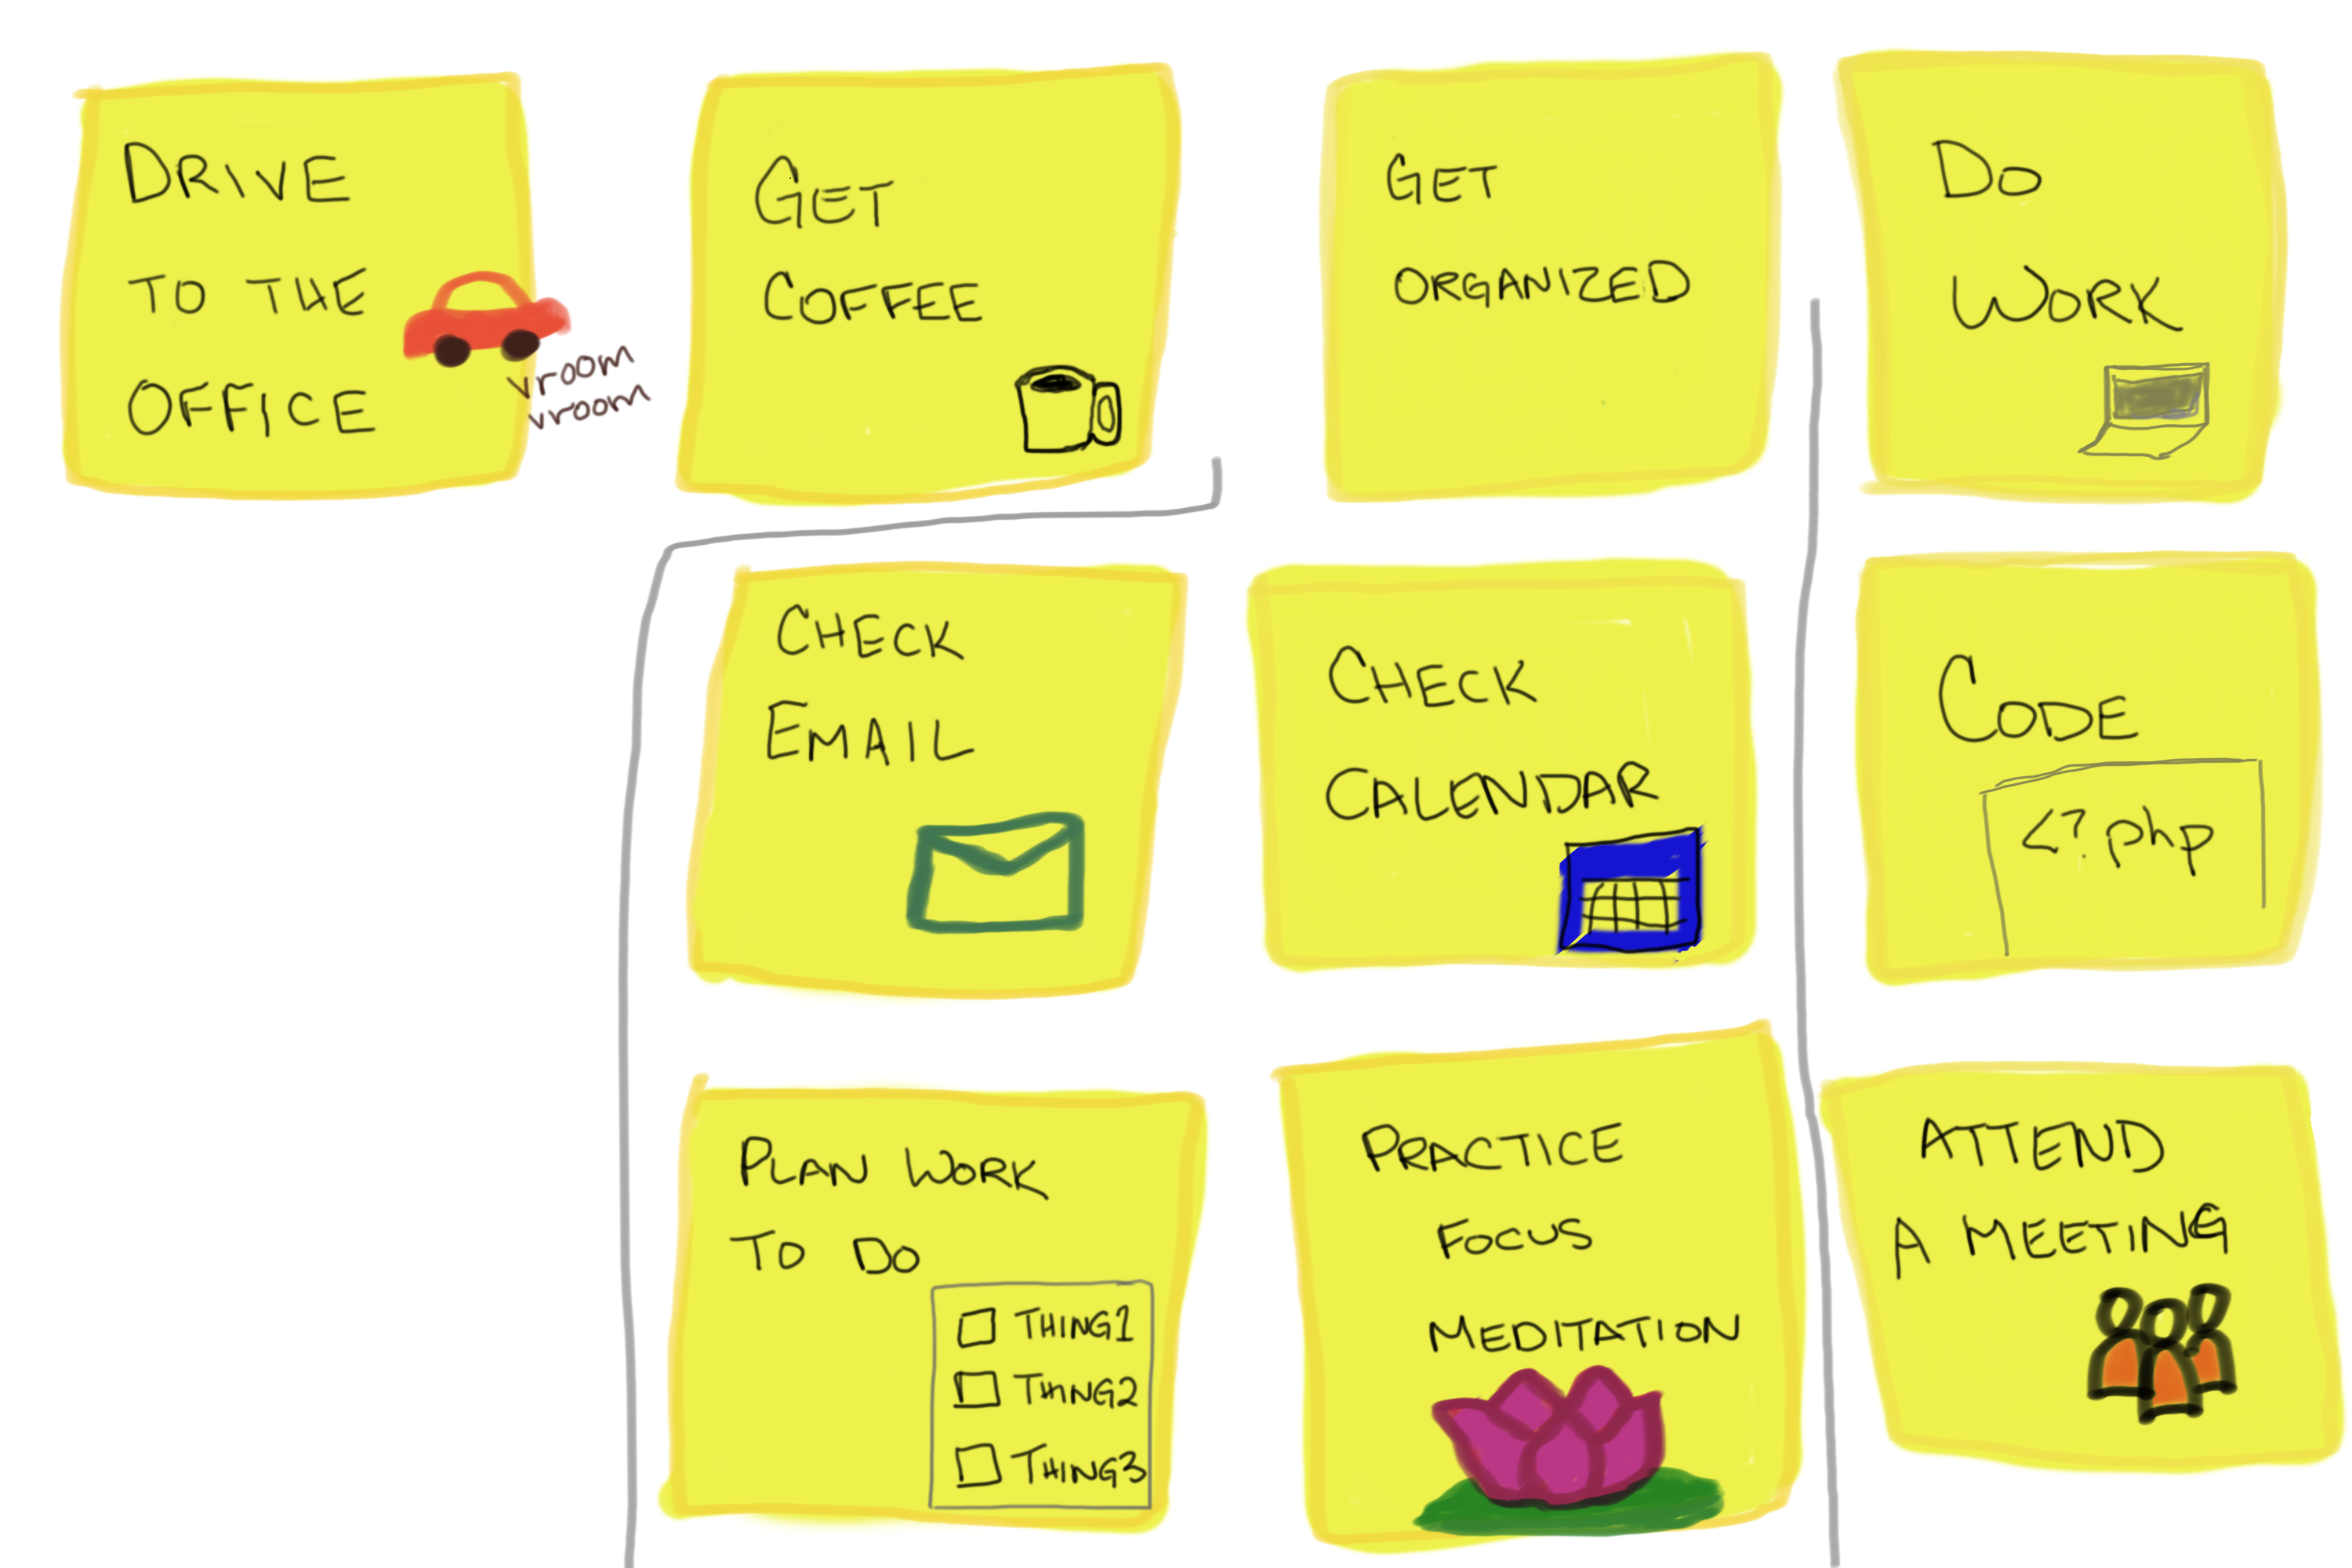 DRIVE
TO THE
OFFICE
vroom
vroom
GET
COFFEE
GET
ORGANIZED
DO
WORK
CHECK
EMAIL
CHECK
CALENDAR
CODE
<?php
PLAN WORK
TO DO
THING1
THING2
THING3
PRACTICE
FOCUS
MEDITATION
ATTEND
A MEETING